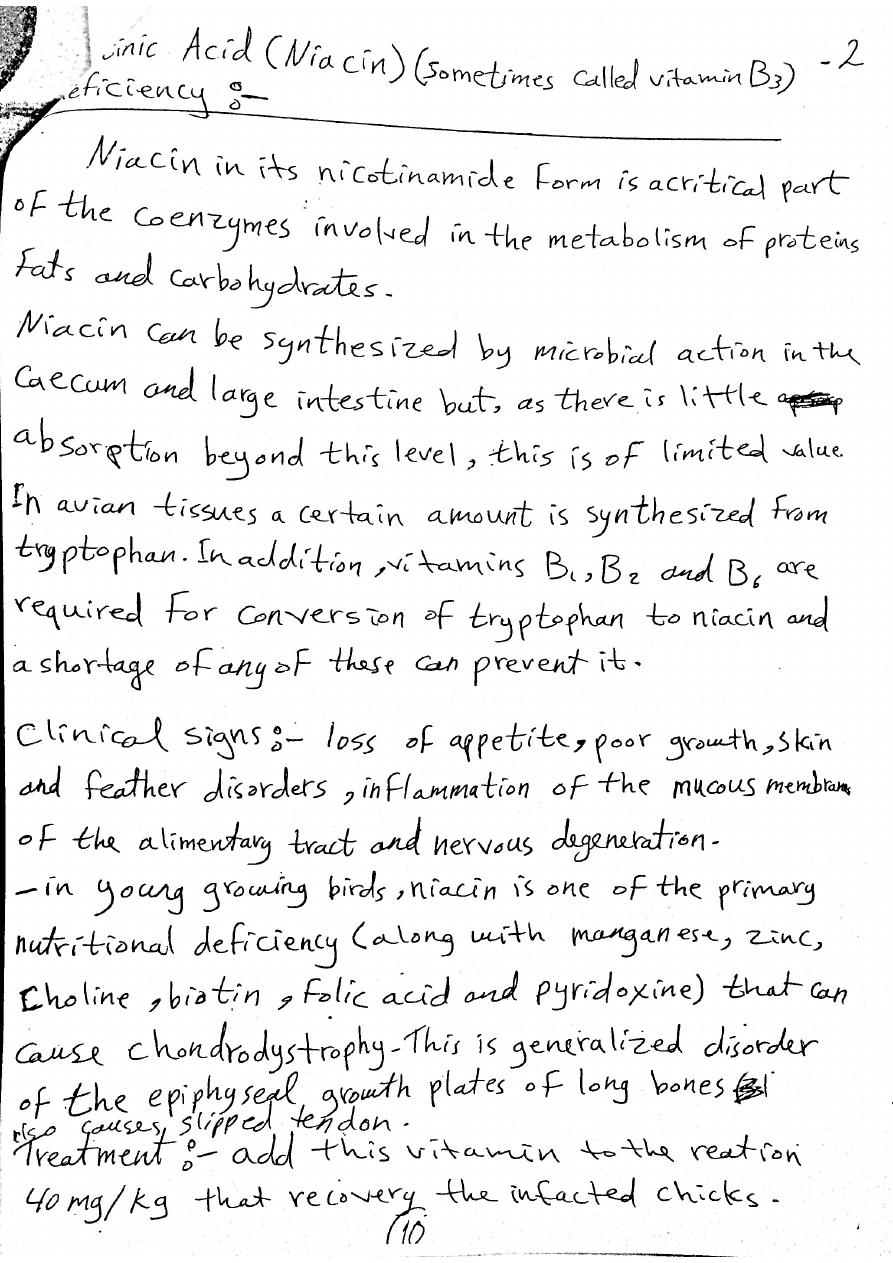 inic Acid (Niacin) (sometimes called vitamin B3) -2
eficiency :-
Niacin in its nicotinamide form is a critical part
of the coenzymes involved in the metabolism of proteins
fats and carbohydrates.
Niacin can be synthesized by microbial action in the
Caecum and large intestine but, as there is little
absorption beyond this level, this is of limited value.
In avian tissues a certain amount is synthesized from
tryptophan. In addition, vitamins B1, B2 and B6 are
required for conversion of tryptophan to niacin and
a shortage of any of these can prevent it.
Clinical signs :- loss of appetite, poor growth, skin
and feather disorders, inflammation of the mucous membrane
of the alimentary tract and nervous degeneration.
- in young growing birds, niacin is one of the primary
nutritional deficiency (along with manganese, zinc,
Choline, biotin, folic acid and pyridoxine) that can
cause chondrodystrophy. This is generalized disorder
of the epiphyseal growth plates of long bones
also causes slipped tendon.
Treatment :- add this vitamin to the reation
40 mg/kg that recovery the infacted chicks.
10